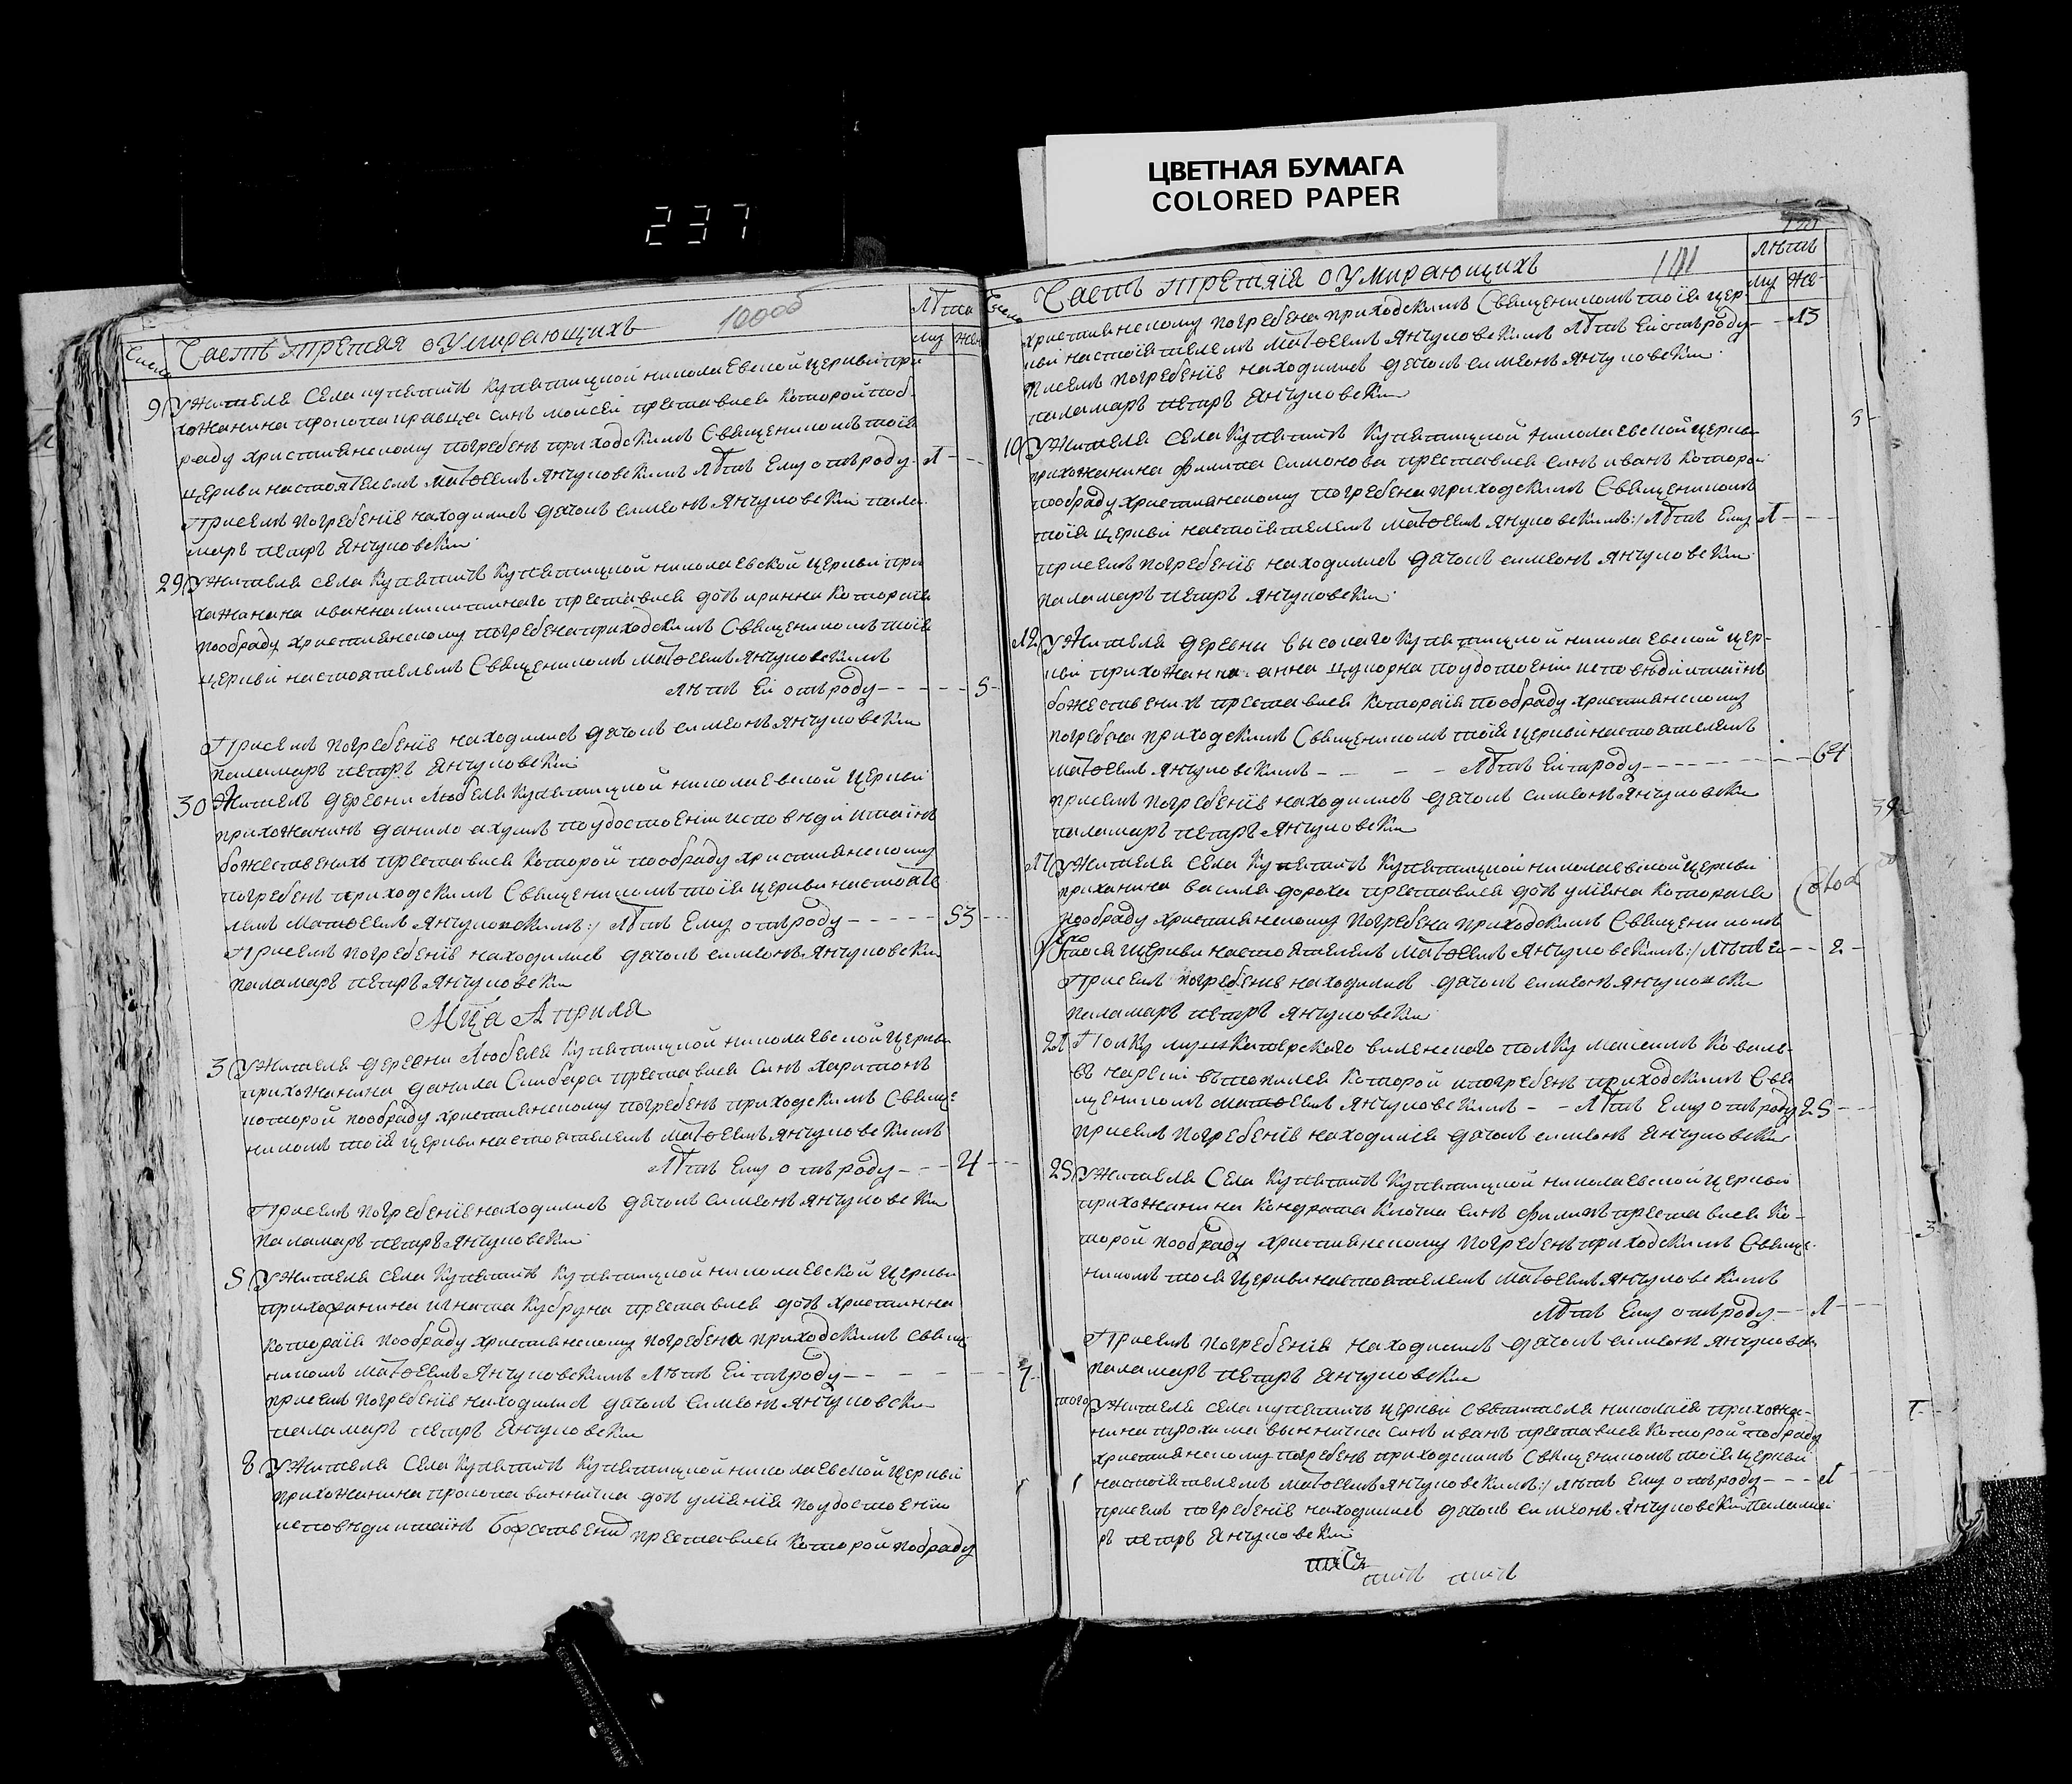 ЦВЕТНАЯ БУМАГА
COLORED PAPER
237
Число Часть третия о Умирающихъ Лѣта
му же
9 У Жителя Села купятичь Купятицкой николаевской церкви при
хожанина прокопа кравца синъ моисей преставися которой пооб-
раду християнскому погребенъ приходскимъ Священикомъ тоїя
церкви настоятелемъ матѳеемъ Янчуковскимъ лѣтъ Ему отъ роду 1
Присемъ погребенїе находились дячокъ симеонъ Янчуковски пала-
маръ петръ Янчуковски
29 У жителя села Купятичь Купятицкой николаевской церкви при
хожанина преставися дочь ирина которая
пообраду християнскому погребена приходскимъ Священикомъ тоїя
церкви настоятелемъ Священикомъ матѳеемъ Янчуковскимъ
лѣтъ Ей отъ роду 5
Присемъ погребенїе находились дячокъ симеонъ Янчуковски
паламаръ петръ Янчуковски
30 Житель деревни Любеля Купятицкой николаевской церкви
прихожанинъ данило поудостоенїи исповѣди итаїнъ
божественихъ преставися которой пообраду християнскому
погребенъ приходскимъ Священикомъ тоїя церкви настояте
лемъ Матѳеемъ Янчуковскимъ:/ Лѣтъ Ему отъ роду 53
Присемъ погребенїе находились дячокъ симеонъ Янчуковски
паламаръ петръ Янчуковски
Мца Априля
3 У Жителя деревни Любеля Купятицкой николаевской церкви
прихожанина данила преставися Синъ харитонъ
которой пообраду християнскому погребенъ приходскимъ Свяще-
никомъ тоїя церкви настоятелемъ матѳеемъ Янчуковскимъ
Лѣтъ Ему отъ роду 4
Присемъ погребенїе находились дячокъ симеонъ Янчуковски
Паламаръ петръ Янчуковски
5 У Жителя села Купятичь Купятицкой николаевской церкви
прихожанина игната преставися дочь христинна
которая пообраду християнскому погребена приходскимъ свяще
никомъ матѳеемъ Янчуковскимъ лѣтъ Ей отъроду 7
присемъ погребенїе находились дячокъ симеонъ Янчуковски
паламаръ петръ Янчуковски
8 У Жителя Села Купятичь Купятицкой николаевской церкви
прихожанина прокопа дочь поудостоенїи
исповѣди итаїнъ Божествени преставися которой пообраду
Число Часть третяїя о Умирающихъ 111 Лѣтъ
му же
християнскому погребена приходскимъ Священикомъ тоїя цер-
кви настоїятелемъ матѳеемъ Янчуковскимъ Лѣтъ Ей отъроду 13
Присемъ погребенїе находились дячокъ симеонъ Янчуковски
паламаръ петръ Янчуковски
10 У Жителя села Купятичь Купятицкой николаевской церкви
прихожанина филипа симонова преставися синъ иванъ которой
пообраду християнскому погребена приходскимъ Священикомъ
тоїя церкви настоїятелемъ матѳеемъ Янчуковскимъ:/ Лѣтъ Ему 1
присемъ погребенїе находились дячокъ симеонъ Янчуковски
паламаръ петръ Янчуковски
12 У Жителя деревни високаго Купятицкой николаевской цер-
кви прихожанка анна поудостоенїи исповѣди итаїнъ
божественихъ преставися которая пообраду християнскому
погребена приходскимъ Священикомъ тоїя церкви настоятелемъ
матѳеемъ Янчуковскимъ Лѣтъ Ей отъроду 64
присемъ погребенїе находились дячокъ симеонъ Янчуковски
паламаръ петръ Янчуковски
У Жителя села Купятичь Купятицкой николаевской церкви
василя дороха преставися дочь которая
пообраду християнскому погребена приходскимъ Священикомъ
тоїя церкви настоятелемъ матѳеемъ Янчуковскимъ:/ лѣтъ 2
Присемъ погребенїе находились дячокъ симеонъ Янчуковски
паламаръ петръ Янчуковски
21 Полку мушкатерского виленского полку
которой ипогребенъ приходскимъ Свя
щеникомъ матѳеемъ Янчуковскимъ Лѣтъ Ему отъроду 25
присемъ погребенїе находились дячокъ симеонъ Янчуковски
25 У Жителя Села Купятичь Купятицкой николаевской церкви
прихожанина Кондрата синъ филипъ преставися ко-
торой пообраду християнскому погребенъ приходскимъ Свяще-
никомъ тоїя церкви настоятелемъ матѳеемъ Янчуковскимъ
Лѣтъ Ему отъроду 1
Присемъ погребенїе находились дячокъ симеонъ Янчуковски
паламаръ петръ Янчуковски
того У Жителя села купятичь церкви святителя николаїя прихожа-
нина синъ иванъ преставися которой пообраду
християнскому погребенъ приходскимъ Священикомъ тоїя церкви
настоїятелемъ матѳеемъ Янчуковскимъ:/ лѣтъ Ему отъроду 1
присемъ погребенїе находились дячокъ симеонъ Янчуковски Паламаи
ръ петръ Янчуковски